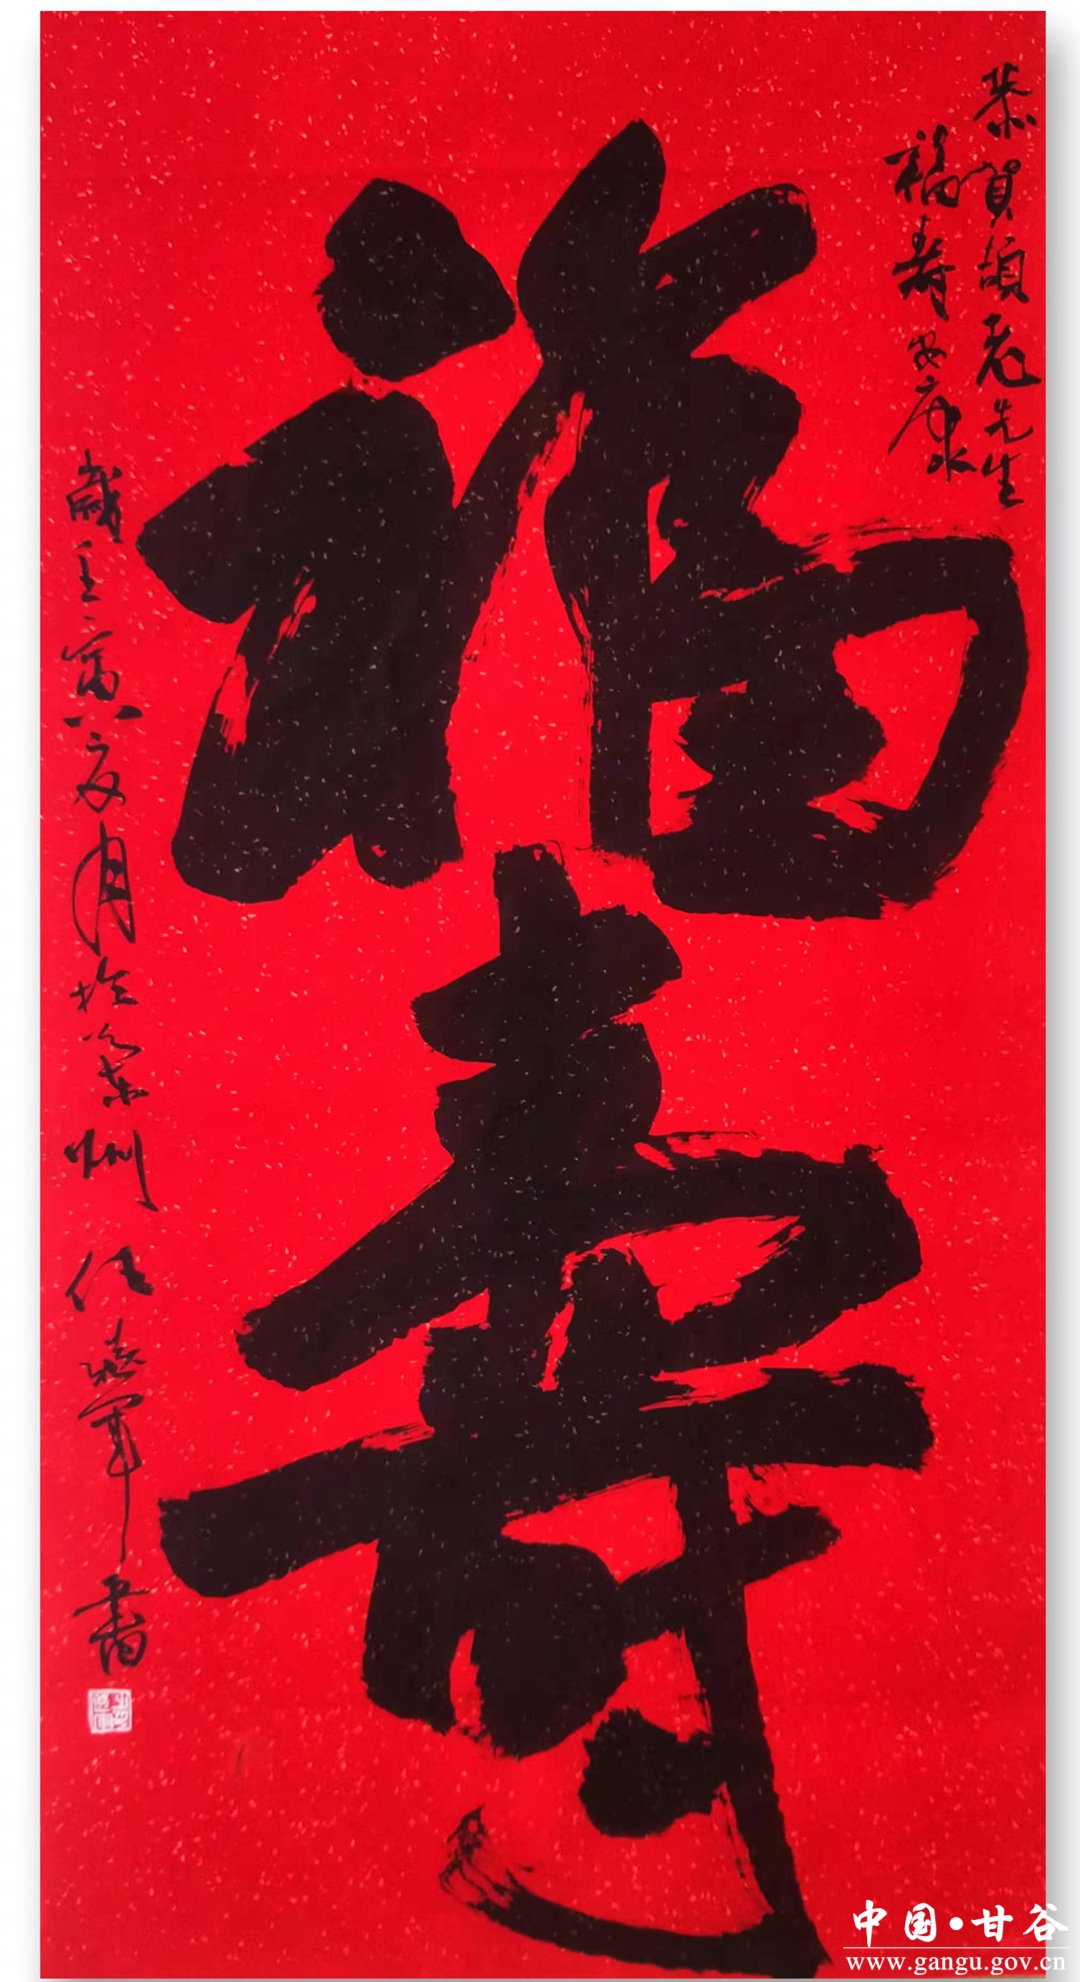 恭賀頓老先生
福壽安康
福壽
歲壬寅八月於蘭州
任 軍書
中国·甘谷
www.gangu.gov.cn